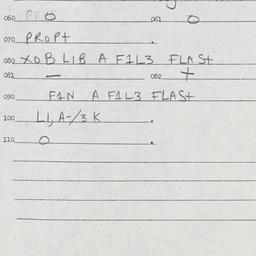 060 PRO 061 O
070 PROPt .
080 XOB LIB A F1L3 FLASt
081 — 082 +
090 F1N A F1L3 FLASt
100 L1, A-/3 K .
110 O .